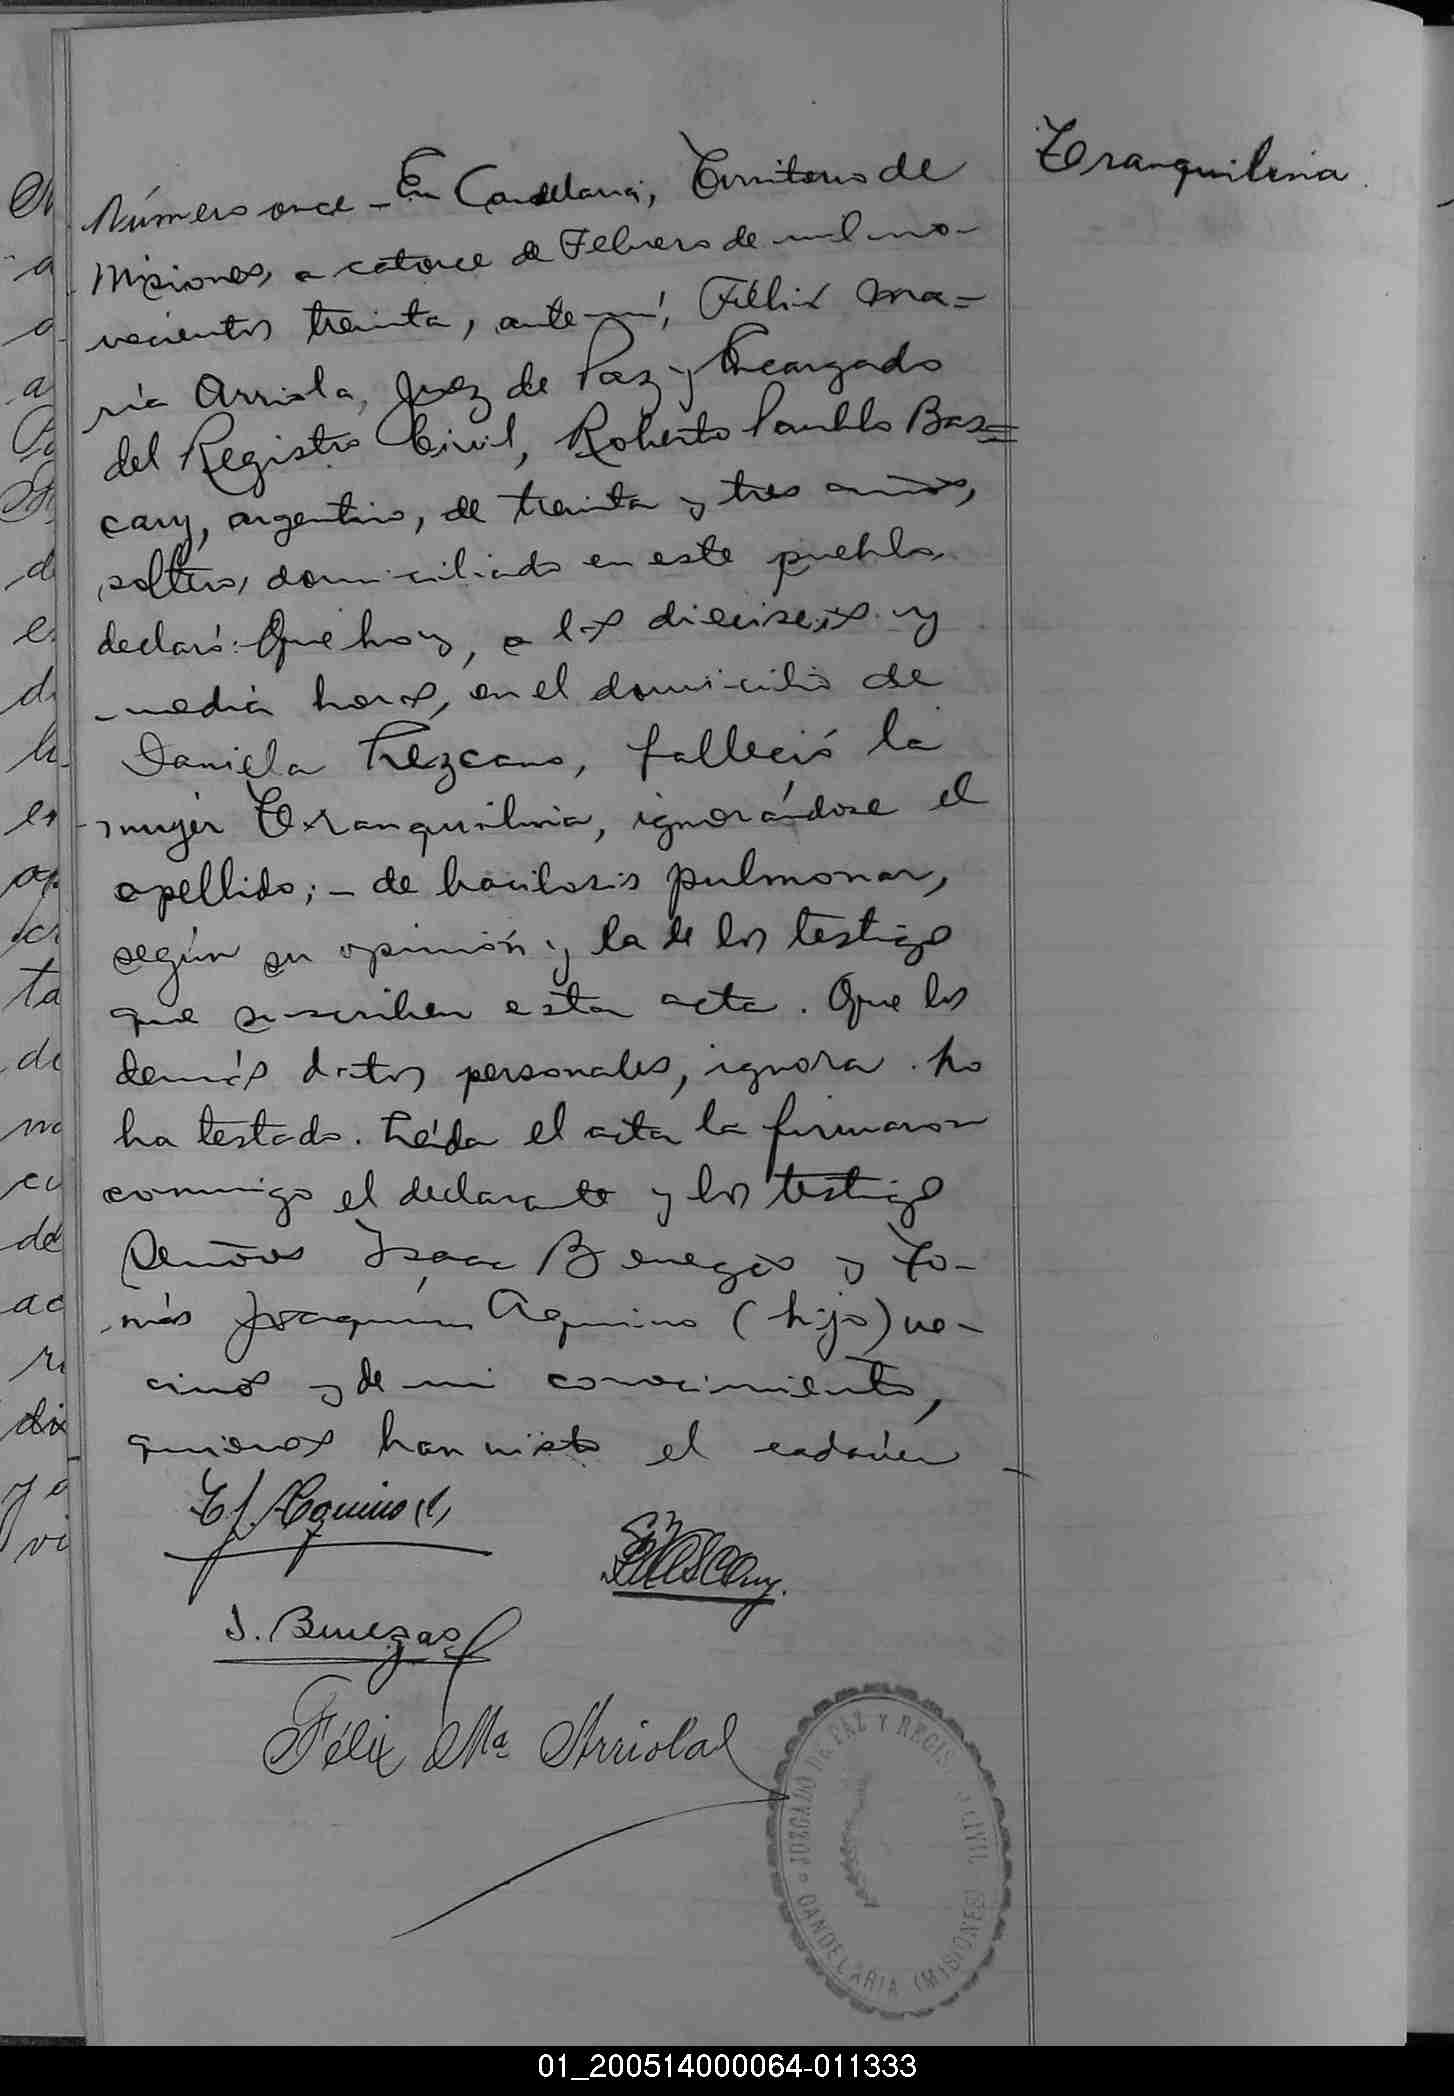 Tranquilina
Número once - En Candelaria, Territorio de
Misiones, a catorce de Febrero de mil no-
vecientos treinta, ante mí, Félix Ma=
ría Arriola, Juez de Paz y Encargado
del Registro Civil, Roberto Paublo Bas=
cary, argentino, de treinta y tres años,
soltero, domiciliado en este pueblo,
declaró: Que hoy, a las dieciseis y
media horas, en el domicilio de
Daniela Lezcano, falleció la
mujer Tranquilina, ignorándose el
apellido; - de bacilosis pulmonar,
según su opinión y la de los testigos
que suscriben esta acta. Que los
demás datos personales, ignora. No
ha testado. Leída el acta la firmaron
conmigo el declarante y los testigos
Señores Isaac Benegas y To-
más Joaquín Aquino (hijo) ve-
cinos y de mi conocimiento,
quienes han visto el cadáver
T. J. Aquino (h)
Bascary.
I. Benegas
Félix Ma. Arriola
JUZGADO DE PAZ Y REGIS CIVIL
CANDELARIA (MISIONES)
01_200514000064-011333